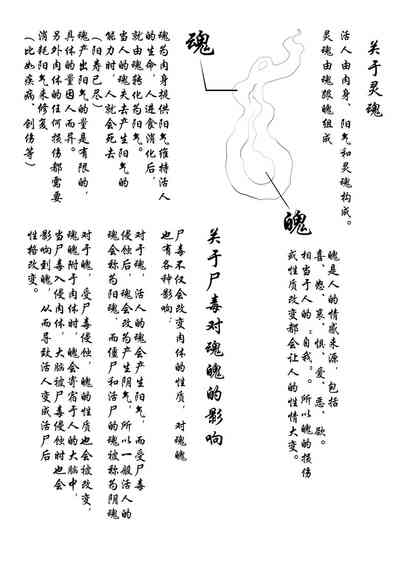 关于灵魂
活人由肉身、阳气和灵魂构成。
灵魂由魂跟魄组成
魂
魄
魂为肉身提供阳气维持活人
的生命，人进食消化后，
就由魂转化为阳气。
当人的魂失去产生阳气的
能力时，人就会死去
（阳寿已尽）
魂产出阳气的量是有限的，
具体的量因人而异。
另外肉体的任何损伤都需要
消耗阳气来修复
（比如疾病、创伤等）
魄是人的情感来源，包括
喜、怒、哀、惧、爱、恶、欲。
相当于人的“自我”。所以魄的损伤
或性质改变都会让人的性情大变。
关于尸毒对魂魄的影响
尸毒不仅会改变肉体的性质，对魂魄
也有各种影响：
对于魂，活人的魂会产生阳气，而受尸毒
侵蚀后，魂会改为产生阴气，所以一般活人的
魂会称为阳魂，而僵尸和活尸的魂被称为阴魂
对于魄，受尸毒侵蚀，魄的性质也会被改变，
魂魄附于肉体时，魄会寄宿于人的大脑中，
当尸毒入侵肉体，大脑被尸毒侵蚀时也会
影响到魄，从而导致活人变成活尸后
性格改变。